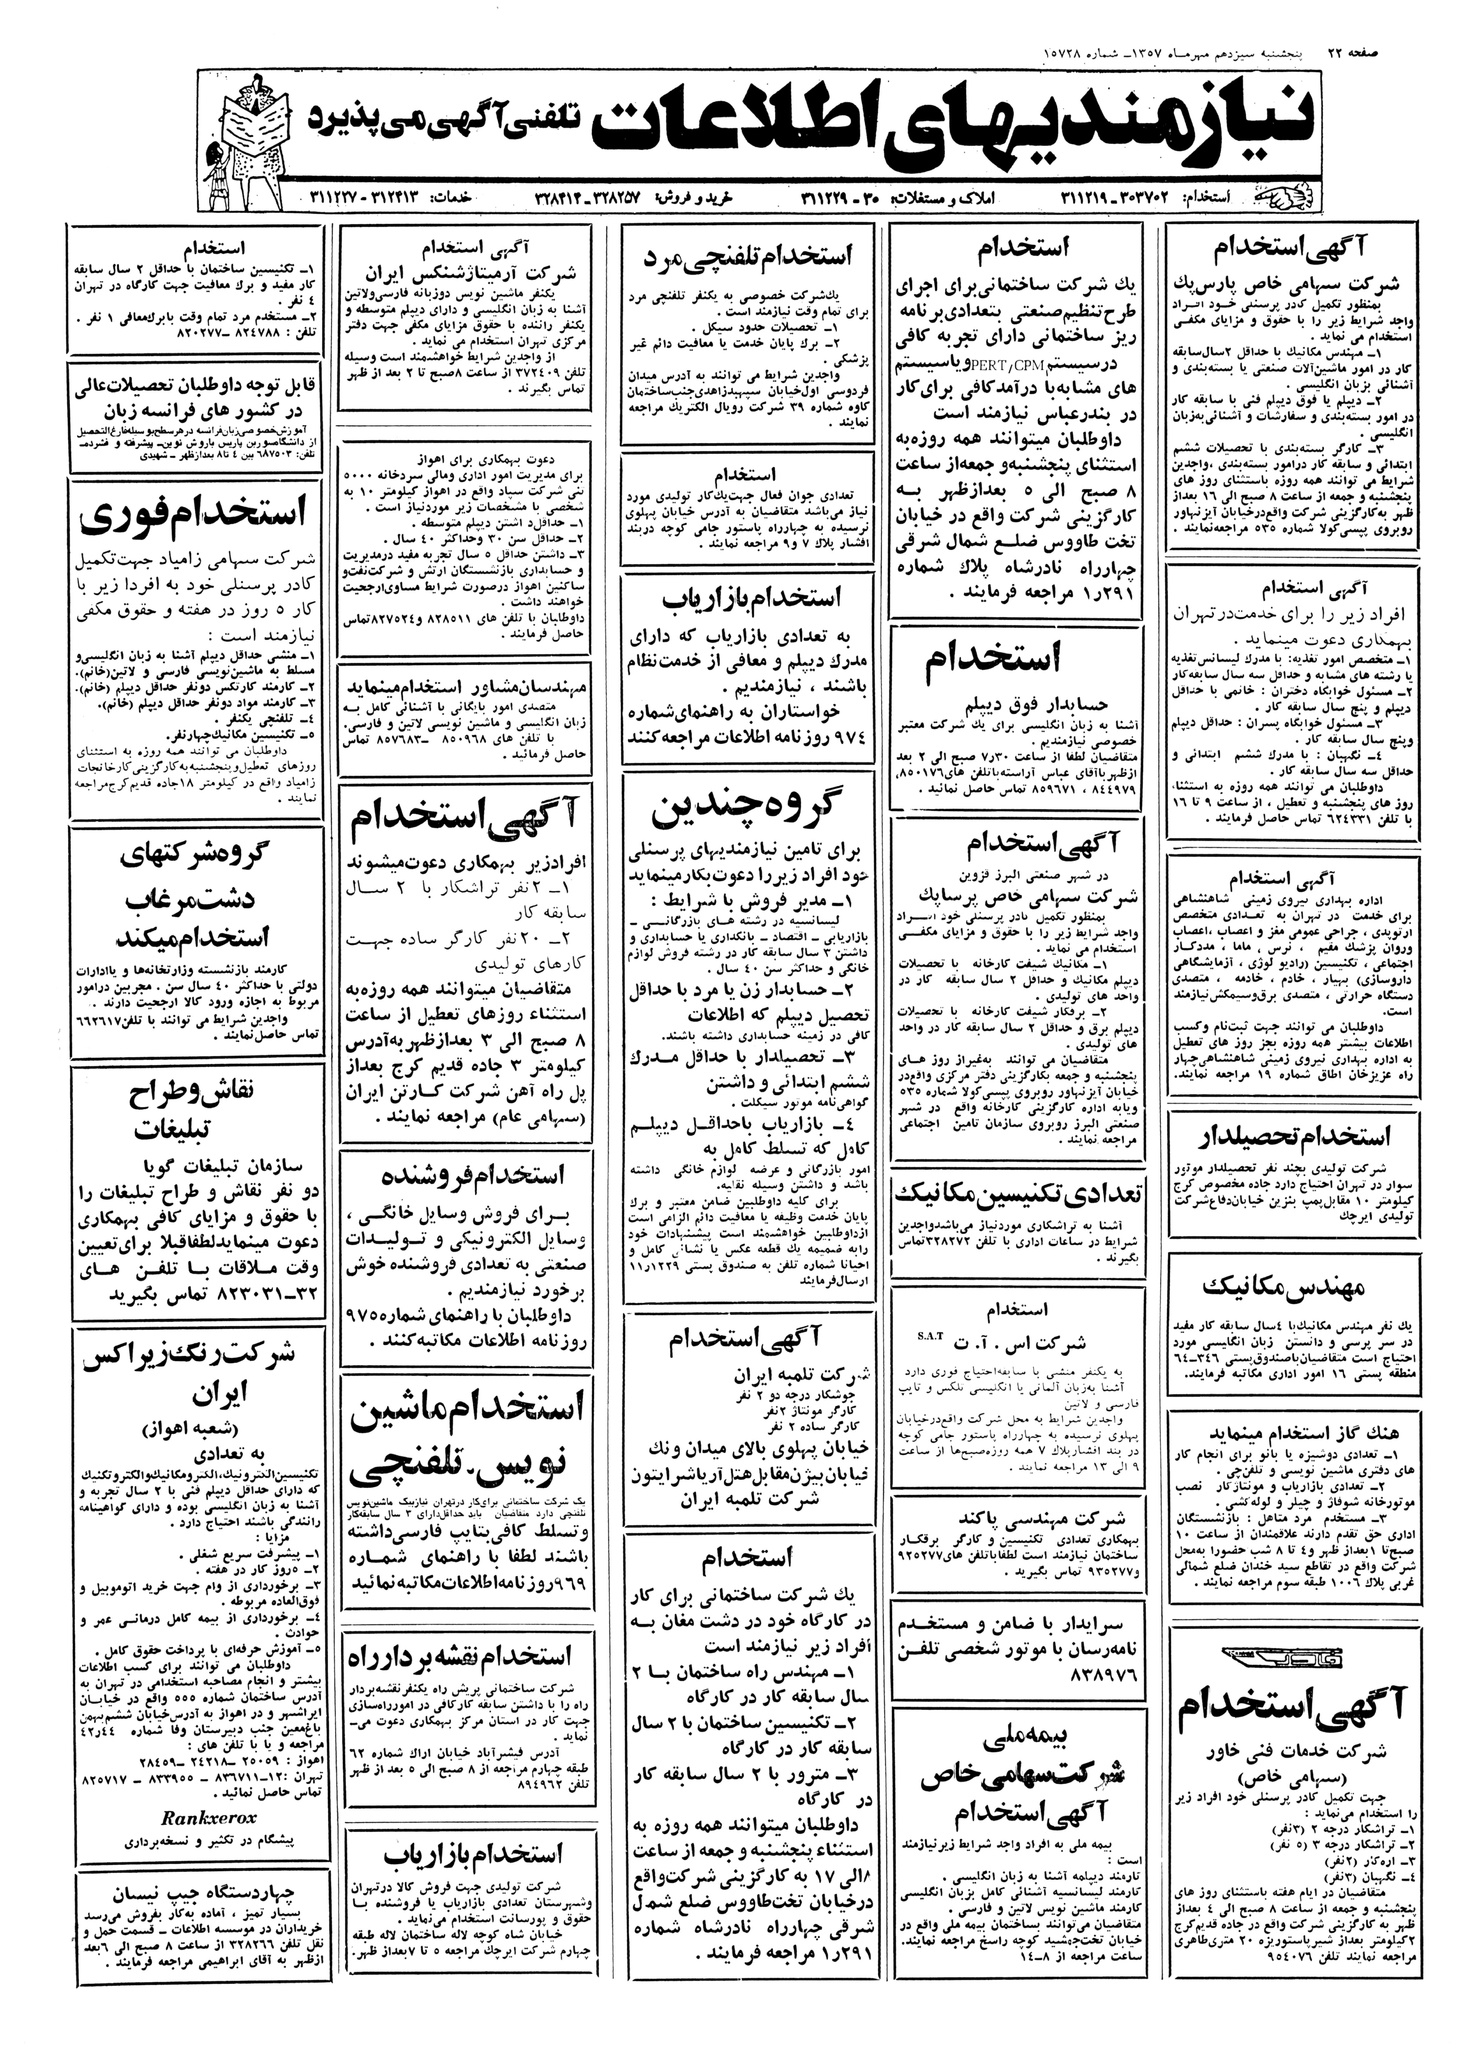 صفحه ۲۲ پنجشنبه سیزدهم مهرماه ۱۳۵۷ـ شماره ۱۵۷۲۸
نیازمندیهای اطلاعات تلفنی آگهی می‌پذیرد
استخدام: ۳۰۳۷۰۲ـ۳۱۱۲۱۹ املاک و مستغلات: ۳۰ـ۳۱۱۲۲۹ خرید و فروش: ۳۲۸۲۵۷ـ۳۲۸۴۱۴ خدمات: ۳۱۲۴۱۳ـ۳۱۱۲۲۷
آگهی استخدام
شرکت سهامی خاص پارس‌پك
بمنظور تکمیل کادر پرسنلی خود افراد
واجد شرایط زیر را با حقوق و مزایای مکفی
استخدام می نماید .
۱ـ مهندس مکانیك با حداقل ۲سال‌سابقه
کار در امور ماشین‌آلات صنعتی یا بسته‌بندی و
آشنائی بزبان انگلیسی .
۲ـ دیپلم یا فوق دیپلم فنی با سابقه کار
در امور بسته‌بندی و سفارشات و آشنائی‌به‌زبان
انگلیسی .
۳ـ کارگر بسته‌بندی با تحصیلات ششم
ابتدائی و سابقه کار درامور بسته‌بندی ،واجدین
شرایط می توانند همه روزه باستثنای روز های
پنجشنبه و جمعه از ساعت ۸ صبح الی ۱۶ بعداز
ظهر به‌کارگزینی شرکت واقع‌درخیابان آیزنهاور
روبروی پپسی‌کولا شماره ۵۳۵ مراجعه‌نمایند .
آگهی استخدام
افراد زیر را برای خدمت‌در تهران
بهمکاری دعوت مینماید .
۱ـ متخصص امور تغذیه: با مدرك لیسانس‌تغذیه
یا رشته های مشابه و حداقل سه سال سابقه‌کار
۲ـ مسئول خوابگاه دختران : خانمی با حداقل
دیپلم و پنج سال سابقه کار .
۳ـ مسئول خوابگاه پسران : حداقل دیپلم
وپنج سال سابقه کار .
۴ـ نگهبان : با مدرك ششم ابتدائی و
حداقل سه سال سابقه کار .
داوطلبان می توانند همه روزه به استثناء
روز های پنجشنبه و تعطیل ، از ساعت ۹ تا ۱۶
با تلفن ۶۲۴۳۳۱ تماس حاصل فرمایند .
آگهی استخدام
اداره بهداری نیروی زمینی شاهنشاهی
برای خدمت در تهران به تعدادی متخصص
ارتوپدی ، جراحی عمومی مغز و اعصاب ،اعصاب
وروان پزشك مقیم ، نرس ، ماما ، مددکار
اجتماعی ، تکنیسین (رادیو لوژی ، آزمایشگاهی
داروسازی) بهیار ، خادم ، خادمه ، متصدی
دستگاه حرارتی ، متصدی برق‌وسیمکش‌نیازمند
است.
داوطلبان می توانند جهت ثبت‌نام وکسب
اطلاعات بیشتر همه روزه بجز روز های تعطیل
به اداره بهداری نیروی زمینی شاهنشاهی‌چهار
راه عزیزخان اطاق شماره ۱۹ مراجعه نمایند.
استخدام تحصیلدار
شرکت تولیدی بچند نفر تحصیلدار موتور
سوار در تهران احتیاج دارد جاده مخصوص کرج
کیلومتر ۱۰ مقابل‌پمپ بنزین خیابان‌دفاع‌شرکت
تولیدی ایرچك
مهندس مکانیك
یك نفر مهندس مکانیك‌با ۴سال سابقه کار مفید
در سر پرسی و دانستن زبان انگلیسی مورد
احتیاج است متقاضیان‌باصندوق‌پستی ۳۴۶ـ۶۴
منطقه پستی ۱۶ امور اداری مکاتبه فرمایند.
هنك گاز استخدام مینماید
۱ـ تعدادی دوشیزه یا بانو برای انجام کار
های دفتری ماشین نویسی و تلفن‌چی .
۲ـ تعدادی بازاریاب و مونتاژکار نصب
موتورخانه شوفاژ و چیلر و لوله‌کشی .
۳ـ مستخدم مرد متاهل : بازنشستگان
اداری حق تقدم دارند علاقمندان از ساعت ۱۰
صبح‌تا ۱بعداز ظهر و۴ تا ۸ شب حضورا به‌محل
شرکت واقع در تقاطع سید خندان ضلع شمالی
غربی پلاك ۱۰۰۶ طبقه سوم مراجعه نمایند .
آگهی استخدام
شرکت خدمات فنی خاور
(سهامی خاص)
جهت تکمیل کادر پرسنلی خود افراد زیر
را استخدام می‌نماید :
۱ـ تراشکار درجه ۲ (۳نفر)
۲ـ تراشکار درجه ۳ (۵ نفر)
۳ـ اره‌کار (۲نفر)
۴ـ نگهبان (۳نفر)
متقاضیان در ایام هفته باستثنای روز های
پنجشنبه و جمعه از ساعت ۸ صبح الی ۴ بعداز
ظهر به کارگزینی شرکت واقع در جاده قدیم‌کرج
۲کیلومتر بعداز شیرپاستوریزه ۲۰ متری‌طاهری
مراجعه نمایند تلفن ۹۵۴۰۷۶
استخدام
یك شرکت ساختمانی برای اجرای
طرح تنظیم صنعتی بتعدادی برنامه
ریز ساختمانی دارای تجربه کافی
درسیستم PERT/CPM ویا سیستم
های مشابه با درآمد کافی برای کار
در بندرعباس نیازمند است
داوطلبان میتوانند همه روزه به
استثنای پنجشنبه و جمعه از ساعت
۸ صبح الی ۵ بعدازظهر به
کارگزینی شرکت واقع در خیابان
تخت طاووس ضلع شمال شرقی
چهارراه نادرشاه پلاك شماره
۱٫۲۹۱ مراجعه فرمایند .
استخدام
حسابدار فوق دیپلم
آشنا به زبان انگلیسی برای یك شرکت معتبر
خصوصی نیازمندیم .
متقاضیان لطفا از ساعت ۷٫۳۰ صبح الی ۲ بعد
ازظهر باآقای عباس آراسته باتلفن های۸۵۰۱۷۶،
۸۴۴۹۷۹ ، ۸۵۹۶۷۱ تماس حاصل نمائید .
آگهی استخدام
در شهر صنعتی البرز قزوین
شرکت سهامی خاص پرساپك
بمنظور تکمیل کادر پرسنلی خود افراد
واجد شرایط زیر را با حقوق و مزایای مکفی
استخدام می نماید .
۱ـ مکانیك شیفت کارخانه با تحصیلات
دیپلم مکانیك و حداقل ۲ سال سابقه کار در
واحد های تولیدی .
۲ـ برقکار شیفت کارخانه با تحصیلات
دیپلم برق و حداقل ۲ سال سابقه کار در واحد
های تولیدی .
متقاضیان می توانند به‌غیراز روز های
پنجشنبه و جمعه بکارگزینی دفتر مرکزی واقع‌در
خیابان آیزنهاور روبروی پپسی‌کولا شماره ۵۳۵
ویابه اداره کارگزینی کارخانه واقع در شهر
صنعتی البرز روبروی سازمان تامین اجتماعی
مراجعه نمایند .
تعدادی تکنیسین مکانیك
آشنا به تراشکاری موردنیاز می‌باشدواجدین
شرایط در ساعات اداری با تلفن ۳۲۸۲۷۲تماس
بگیرند .
استخدام
شرکت اس . آ. ت S.A.T
به یکنفر منشی با سابقه‌احتیاج فوری دارد
آشنا به‌زبان آلمانی یا انگلیسی تلکس و تایپ
فارسی و لاتین
واجدین شرایط به محل شرکت واقع‌درخیابان
پهلوی نرسیده به چهارراه پاستور جامی کوچه
در بند افشارپلاك ۷ همه روزه‌صبح‌ها از ساعت
۹ الی ۱۳ مراجعه نمایند .
شرکت مهندسی پاکند
بهمکاری تعدادی تکنیسین و کارگر برقکار
ساختمان نیازمند است لطفاباتلفن های۹۲۵۲۷۷
و۹۳۵۲۷۷ تماس بگیرید .
سرایدار با ضامن و مستخدم
نامه‌رسان با موتور شخصی تلفن
۸۳۸۹۷۶
بیمه‌ملی
شرکت سهامی خاص
آگهی استخدام
بیمه ملی به افراد واجد شرایط زیرنیازمند
است :
کارمند دیپلمه آشنا به زبان انگلیسی .
کارمند لیسانسیه آشنائی کامل بزبان انگلیسی
کارمند ماشین نویس لاتین و فارسی .
متقاضیان می‌توانند بساختمان بیمه ملی واقع در
خیابان تخت‌جمشید کوچه راسخ مراجعه نمایند.
ساعت مراجعه از ۸ـ۱۴
استخدام تلفنچی مرد
یك‌شرکت خصوصی به یکنفر تلفنچی مرد
برای تمام وقت نیازمند است .
۱ـ تحصیلات حدود سیکل .
۲ـ برك پایان خدمت یا معافیت دائم غیر
پزشکی .
واجدین شرایط می توانند به آدرس میدان
فردوسی اول‌خیابان سپهبدزاهدی‌جنب‌ساختمان
کاوه شماره ۳۹ شرکت رویال الکتریك مراجعه
نمایند .
استخدام
تعدادی جوان فعال جهت‌یك‌کار تولیدی مورد
نیاز می‌باشد متقاضیان به آدرس خیابان پهلوی
نرسیده به چهارراه پاستور جامی کوچه دربند
افشار پلاك ۷ و۹ مراجعه نمایند .
استخدام بازاریاب
به تعدادی بازاریاب که دارای
مدرك دیپلم و معافی از خدمت نظام
باشند ، نیازمندیم .
خواستاران به راهنمای شماره
۹۷۴ روزنامه اطلاعات مراجعه کنند
گروه چندین
برای تامین نیازمندیهای پرسنلی
خود افراد زیر را دعوت بکار مینماید
۱ـ مدیر فروش با شرایط :
لیسانسیه در رشته های بازرگانی ـ
بازاریابی ـ اقتصاد ـ بانکداری یا حسابداری و
داشتن ۳ سال سابقه کار در رشته فروش لوازم
خانگی و حداکثر سن ۴۰ سال .
۲ـ حسابدار زن یا مرد با حداقل
تحصیل دیپلم که اطلاعات
کافی در زمینه حسابداری داشته باشند.
۳ـ تحصیلدار با حداقل مدرك
ششم ابتدائی و داشتن
گواهی‌نامه موتور سیکلت .
۴ـ بازاریاب با حداقل دیپلم
کامل که تسلط کامل به
امور بازرگانی و عرضه لوازم خانگی داشته
باشد و داشتن وسیله نقلیه.
برای کلیه داوطلبین ضامن معتبر و برك
پایان خدمت وظیفه یا معافیت دائم الزامی است
ازداوطلبین خواهشمند است پیشنهادات خود
رابه ضمیمه یك قطعه عکس با نشانی کامل و
احیانا شماره تلفن به صندوق پستی ۱۱٫۱۲۲۹
ارسال‌فرمایند
آگهی استخدام
شرکت تلمبه ایران
جوشکار درجه دو ۲ نفر
کارگر مونتاژ ۲نفر
کارگر ساده ۲ نفر
خیابان پهلوی بالای میدان ونك
خیابان بیژن مقابل هتل آریاشرایتون
شرکت تلمبه ایران
استخدام
یك شرکت ساختمانی برای کار
در کارگاه خود در دشت مغان به
افراد زیر نیازمند است
۱ـ مهندس راه ساختمان با ۲
سال سابقه کار در کارگاه
۲ـ تکنیسین ساختمان با ۲ سال
سابقه کار در کارگاه
۳ـ مترور با ۲ سال سابقه کار
در کارگاه
داوطلبان میتوانند همه روزه به
استثناء پنجشنبه و جمعه از ساعت
۸الی ۱۷ به کارگزینی شرکت واقع
درخیابان تخت‌طاووس ضلع شمال
شرقی چهارراه نادرشاه شماره
۱٫۲۹۱ مراجعه فرمایند .
آگهی استخدام
شرکت آرمیتاژشنکس ایران
یکنفر ماشین نویس دوزبانه فارسی‌ولاتین
آشنا به زبان انگلیسی و دارای دیپلم متوسطه و
یکنفر راننده با حقوق مزایای مکفی جهت دفتر
مرکزی تهران استخدام می نماید .
از واجدین شرایط خواهشمند است وسیله
تلفن ۳۷۲۴۰۹ از ساعت ۸صبح تا ۲ بعد از ظهر
تماس بگیرند .
دعوت بهمکاری برای اهواز
برای مدیریت امور اداری ومالی سردخانه ۵۰۰۰
تنی شرکت سیاد واقع در اهواز کیلومتر ۱۰ به
شخصی با مشخصات زیر موردنیاز است .
۱ـ حداقل‌د اشتن دیپلم متوسطه .
۲ـ حداقل سن ۳۰ وحداکثر ۴۰ سال .
۳ـ داشتن حداقل ۵ سال تجربه مفید درمدیریت
و حسابداری بازنشستگان ارتش و شرکت‌نفت‌و
ساکنین اهواز درصورت شرایط مساوی‌ارجحیت
خواهند داشت .
داوطلبان با تلفن های ۸۲۸۵۱۱ و۸۲۷۵۲۴تماس
حاصل فرمایند .
مهندسان مشاور استخدام مینماید
متصدی امور بایگانی با آشنائی کامل به
زبان انگلیسی و ماشین نویسی لاتین و فارسی.
با تلفن های ۸۵۰۹۶۸ ـ۸۵۷۶۸۳ تماس
حاصل فرمائید .
آگهی استخدام
افراد زیر بهمکاری دعوت میشوند
۱ـ ۲نفر تراشکار با ۲ سال
سابقه کار
۲ـ ۲۰نفر کارگر ساده جهت
کارهای تولیدی
متقاضیان میتوانند همه روزه به
استثناء روزهای تعطیل از ساعت
۸ صبح الی ۳ بعدازظهر به‌آدرس
کیلومتر ۳ جاده قدیم کرج بعداز
پل راه آهن شرکت کارتن ایران
(سهامی عام) مراجعه نمایند .
استخدام فروشنده
برای فروش وسایل خانگی ،
وسایل الکترونیکی و تولیدات
صنعتی به تعدادی فروشنده خوش
برخورد نیازمندیم .
داوطلبان با راهنمای شماره ۹۷۵
روزنامه اطلاعات مکاتبه کنند .
استخدام ماشین
نویس ـ تلفنچی
یک شرکت ساختمانی برای‌کار درتهران نیازبیک ماشین‌نویس
تلفنچی دارد متقاضیان باید حداقل‌دارای ۳ سال سابقه‌کار
وتسلط کافی بتایپ فارسی داشته
باشند لطفا با راهنمای شماره
۹۶۹ روزنامه اطلاعات مکاتبه نمائید
استخدام نقشه بردار راه
شرکت ساختمانی پریش راه یکنفرنقشه‌بردار
راه را با داشتن سابقه کارکافی در امورراه‌سازی
جهت کار در استان مرکز بهمکاری دعوت می‌ـ
نماید .
آدرس فیشرآباد خیابان اراك شماره ۶۲
طبقه چهارم مراجعه از ۸ صبح الی ۵ بعد از ظهر
تلفن ۸۹۴۹۶۲
استخدام بازاریاب
شرکت تولیدی جهت فروش کالا درتهران
وشهرستان تعدادی بازاریاب یا فروشنده با
حقوق و پورسانت استخدام می‌نماید .
خیابان شاه کوچه لاله ساختمان لاله طبقه
چهارم شرکت ایرچك مراجعه ۵ تا ۷بعداز ظهر.
استخدام
۱ـ تکنیسین ساختمان با حداقل ۲ سال سابقه
کار مفید و برك معافیت جهت کارگاه در تهران
۴ نفر .
۲ـ مستخدم مرد تمام وقت بابرك‌معافی ۱ نفر .
تلفن : ۸۲۴۷۸۸ ـ۸۲۰۲۷۷
قابل توجه داوطلبان تحصیلات‌عالی
در کشور های فرانسه زبان
آموزش‌خصوصی‌زبان‌فرانسه درهرسطح‌بوسیله‌فارغ‌التحصیل
از دانشگاه‌سوربن پاریس باروش نوین‌ـ پیشرفته و فشرده‌ـ
تلفن: ۶۸۷۵۰۳ بین ۴ تا ۸ بعدازظهر ـ شهیدی
استخدام فوری
شرکت سهامی زامیاد جهت تکمیل
کادر پرسنلی خود به افردا زیر با
کار ۵ روز در هفته و حقوق مکفی
نیازمند است :
۱ـ منشی حداقل دیپلم آشنا به زبان انگلیسی‌و
مسلط به ماشین‌نویسی فارسی و لاتین(خانم).
۲ـ کارمند کارتکس دونفر حداقل دیپلم (خانم).
۳ـ کارمند مواد دونفر حداقل دیپلم (خانم).
۴ـ تلفنچی یکنفر .
۵ـ تکنیسین مکانیك‌چهارنفر.
داوطلبان می توانند همه روزه به استثنای
روزهای تعطیل‌وپنجشنبه‌به کارگزینی‌کارخانجات
زامیاد واقع در کیلومتر ۱۸جاده قدیم‌کرج‌مراجعه
نمایند .
گروه شرکتهای
دشت مرغاب
استخدام میکند
کارمند بازنشسته وزارتخانه‌ها و یاادارات
دولتی با حداکثر ۴۰ سال سن . مجربین درامور
مربوط به اجازه ورود کالا ارجحیت دارند .
واجدین شرایط می توانند با تلفن‌۶۶۲۶۱۷
تماس حاصل‌نمایند .
نقاش و طراح
تبلیغات
سازمان تبلیغات گویا
دو نفر نقاش و طراح تبلیغات را
با حقوق و مزایای کافی بهمکاری
دعوت مینماید لطفا قبلا برای تعیین
وقت ملاقات با تلفن های
۳۲ـ۸۲۳۰۳۱ تماس بگیرید
شرکت رنك زیراکس
ایران
(شعبه اهواز)
به تعدادی
تکنیسین‌الکترونیك،الکترومکانیك‌والکتروتکنیك
که دارای حداقل دیپلم فنی با ۲ سال تجربه و
آشنا به زبان انگلیسی بوده و دارای گواهینامه
رانندگی باشند احتیاج دارد .
مزایا :
۱ـ پیشرفت سریع شغلی .
۲ـ ۵روز کار در هفته .
۳ـ برخورداری از وام جهت خرید اتوموبیل و
فوق‌العاده مربوطه .
۴ـ برخورداری از بیمه کامل درمانی عمر و
حوادث .
۵ـ آموزش حرفه‌ای با پرداخت حقوق کامل .
داوطلبان می توانند برای کسب اطلاعات
بیشتر و انجام مصاحبه استخدامی در تهران به
آدرس ساختمان شماره ۵۵۵ واقع در خیابان
ایرانشهر و در اهواز به آدرس‌خیابان ششم‌بهمن
باغ‌معین جنب دبیرستان وفا شماره ۴۲٫۴۴
مراجعه و یا با تلفن های :
اهواز : ۲۵۰۵۹ ـ۲۴۲۱۸ ـ۲۸۴۵۹
تهران :۱۲ـ۸۳۶۷۱۱ ـ ۸۳۳۹۵۵ ـ ۸۲۵۷۱۷
تماس حاصل نمائید .
Rankxerox
پیشگام در تکثیر و نسخه‌برداری
چهاردستگاه جیپ نیسان
بسیار تمیز ، آماده به‌کار بفروش می‌رسد
خریداران در موسسه اطلاعات ـ قسمت حمل و
نقل تلفن ۳۲۸۲۶۶ از ساعت ۸ صبح الی ۶بعد
ازظهر به آقای ابراهیمی مراجعه فرمایند .